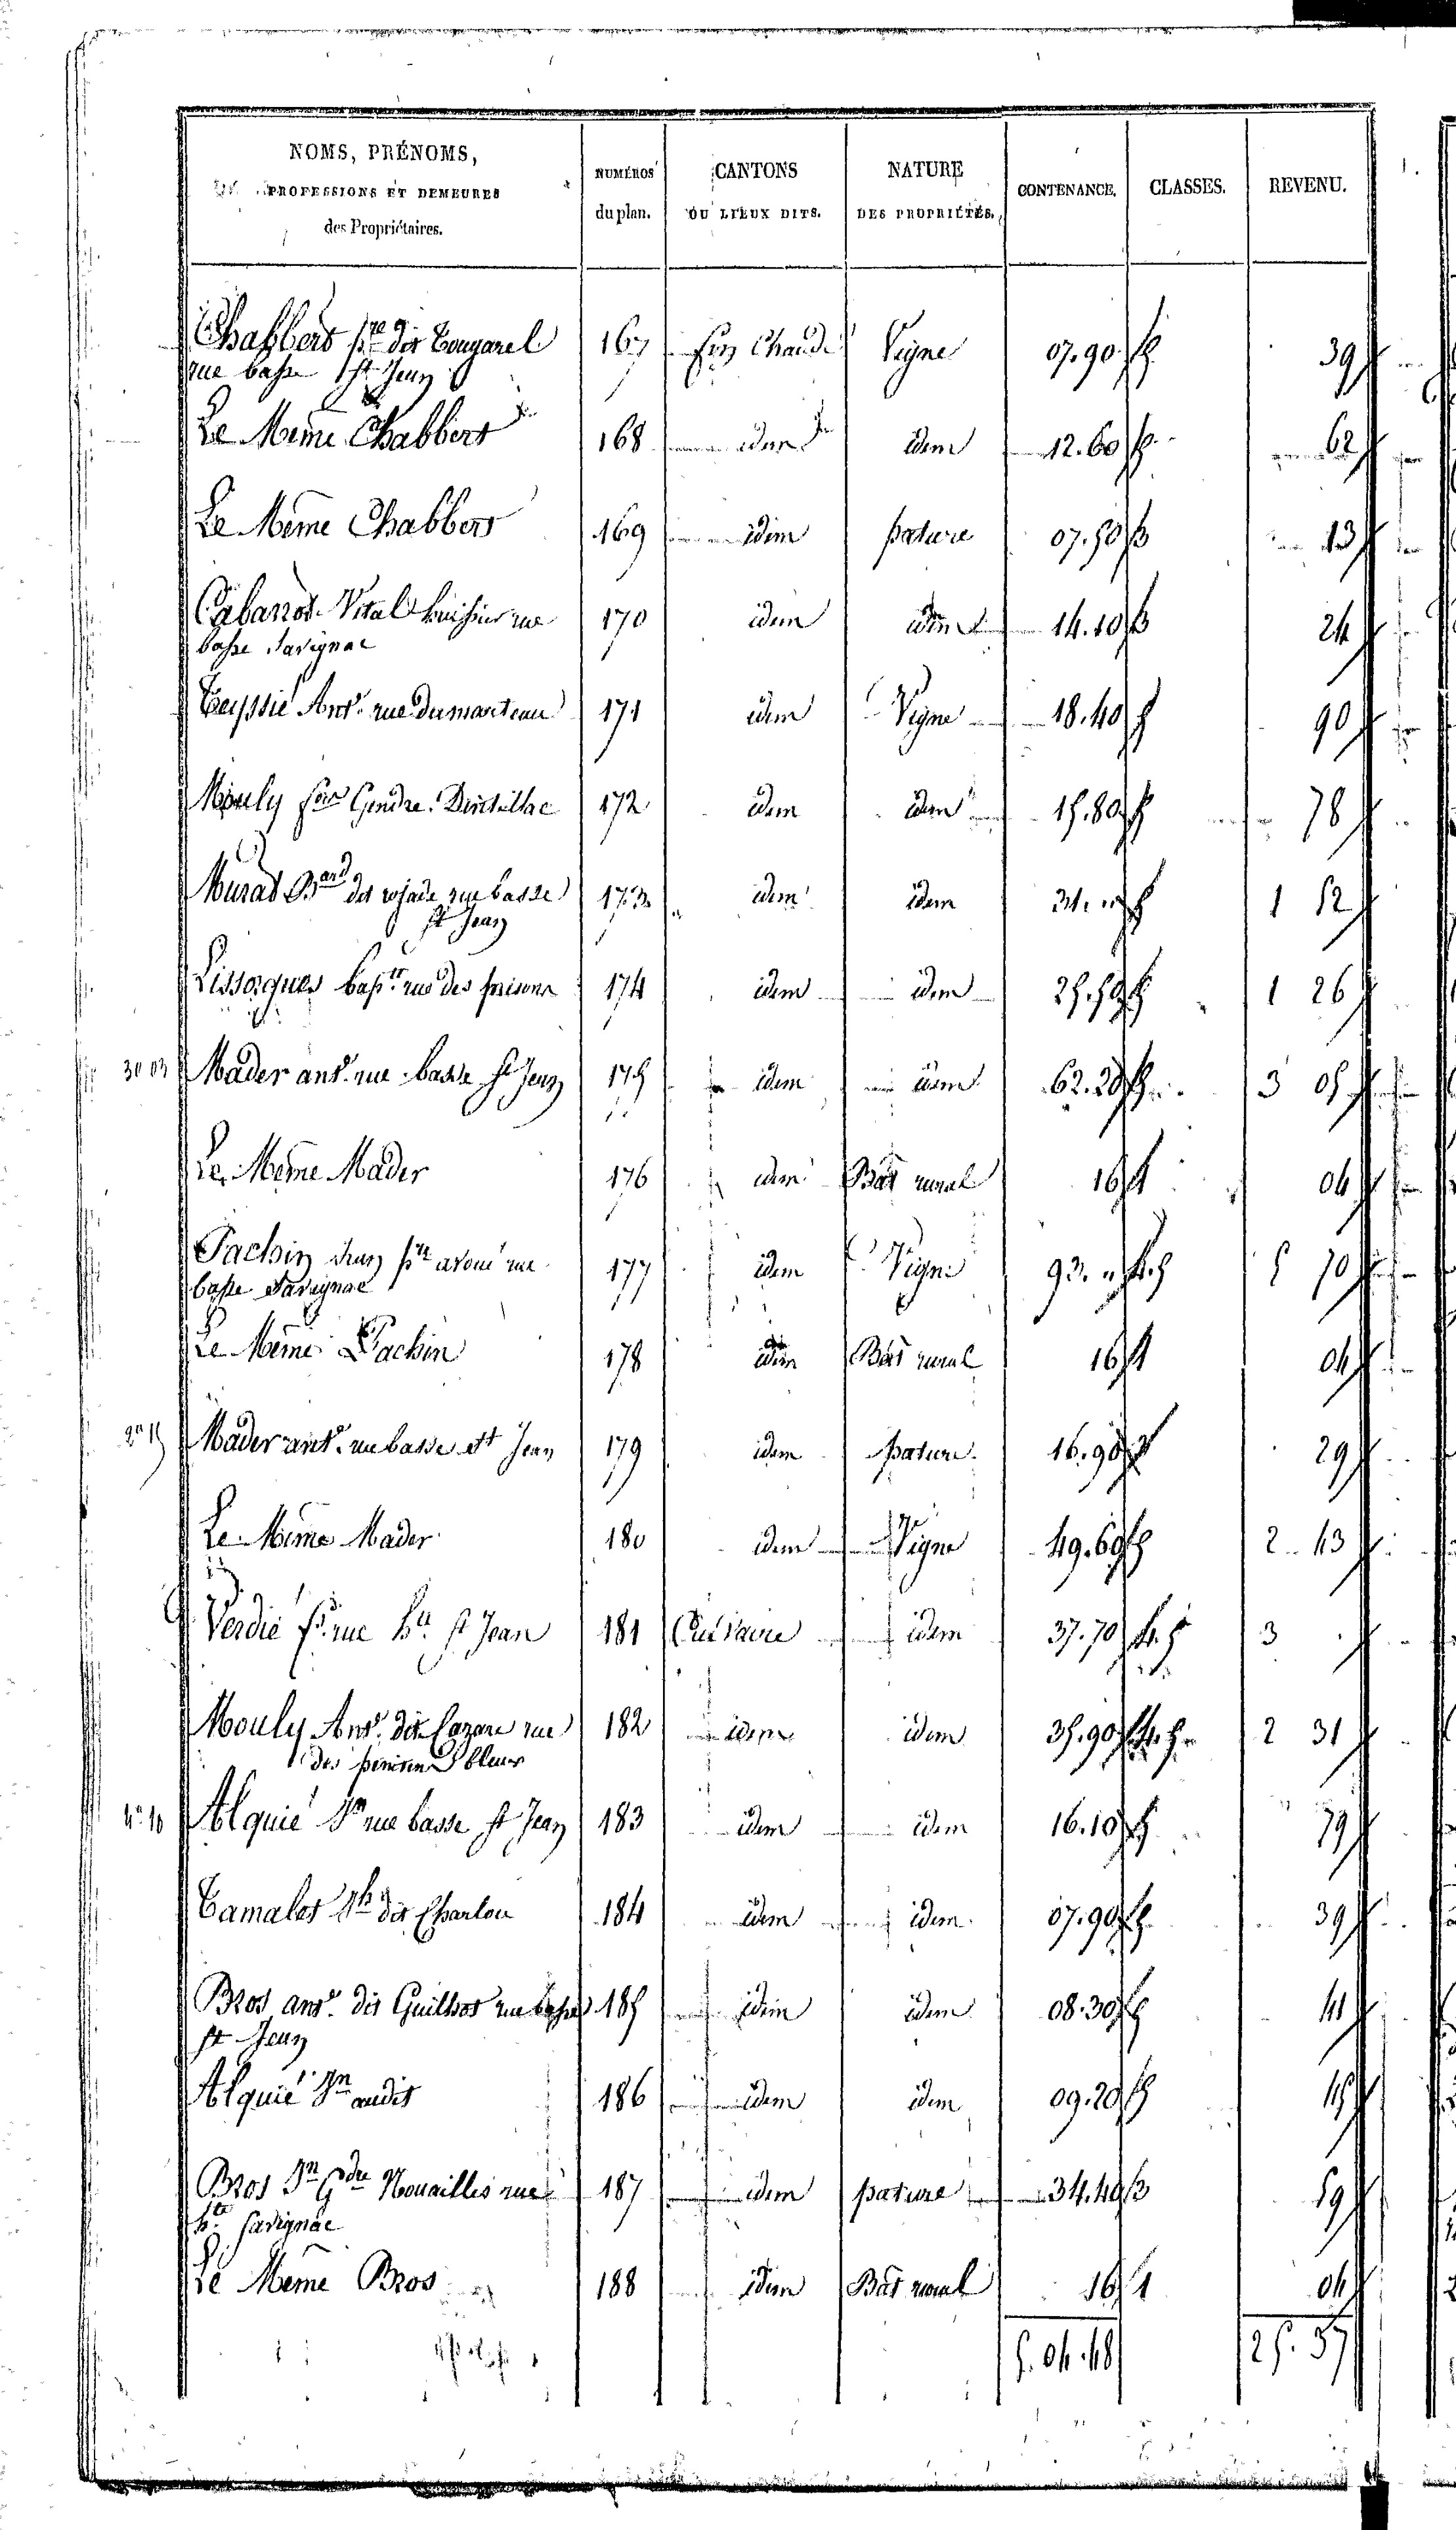 NOMS, PRÉNOMS, PROFESSIONS ET DEMEURES des Propriétaires. | NUMÉROS du plan. | CANTONS OU LIEUX DITS. | NATURE DES PROPRIÉTÉS. | CONTENANCE. | CLASSES. | REVENU.
Chabbert dit 167 Vigne 07.90 5 39
rue basse St Jean
Le Même Chabbert 168 idem idem 12.60 5 62
Le Même Chabbert 169 idem pature 07.50 3 13
Cabanot Vital huissier rue 170 idem idem 14.10 3 24
basse Savignac
Teyssié Ant. rue Dumarteau 171 idem Vigne 18.40 5 90
Mouly Gendre 172 idem idem 15.80 5 78
Murat B.and dit rue basse 173 idem idem 31. " 5 1 52
St Jean
Lissorgues bapt.te rue des prisons 174 idem idem 25.50 5 1 26
Mader ant. rue basse St Jean 175 idem idem 62.20 5 3 05
Le Même Mader 176 idem Bat rural 16 1 04
Pachin Jean avoué rue 177 idem Vigne 93. " 4.5 5 70
basse Savignac
Le Même Pachin 178 idem Bat rural 16 1 04
Mader ant. rue basse St Jean 179 idem pature 16.90 3 29
Le Même Mader 180 idem Vigne 49.60 5 2 43
Verdié rue h.te St Jean 181 idem 37.70 4.5 3
Mouly Ant. dit rue 182 idem idem 35.90 4.5 2 31
des penitens bleus
Alquié Jn rue basse St Jean 183 idem idem 16.10 5 79
Tamalet dit Charlou 184 idem idem 07.90 5 39
Bros ant. dit Guilhot rue basse 185 idem idem 08.30 5 41
St Jean
Alquié Jn audit 186 idem idem 09.20 5 45
Bros Jn Gdre Nouailles rue 187 idem pature 34.40 3 59
h.te Savignac
Le Même Bros 188 idem Bat rural 16 1 04
5.04.48 25.57